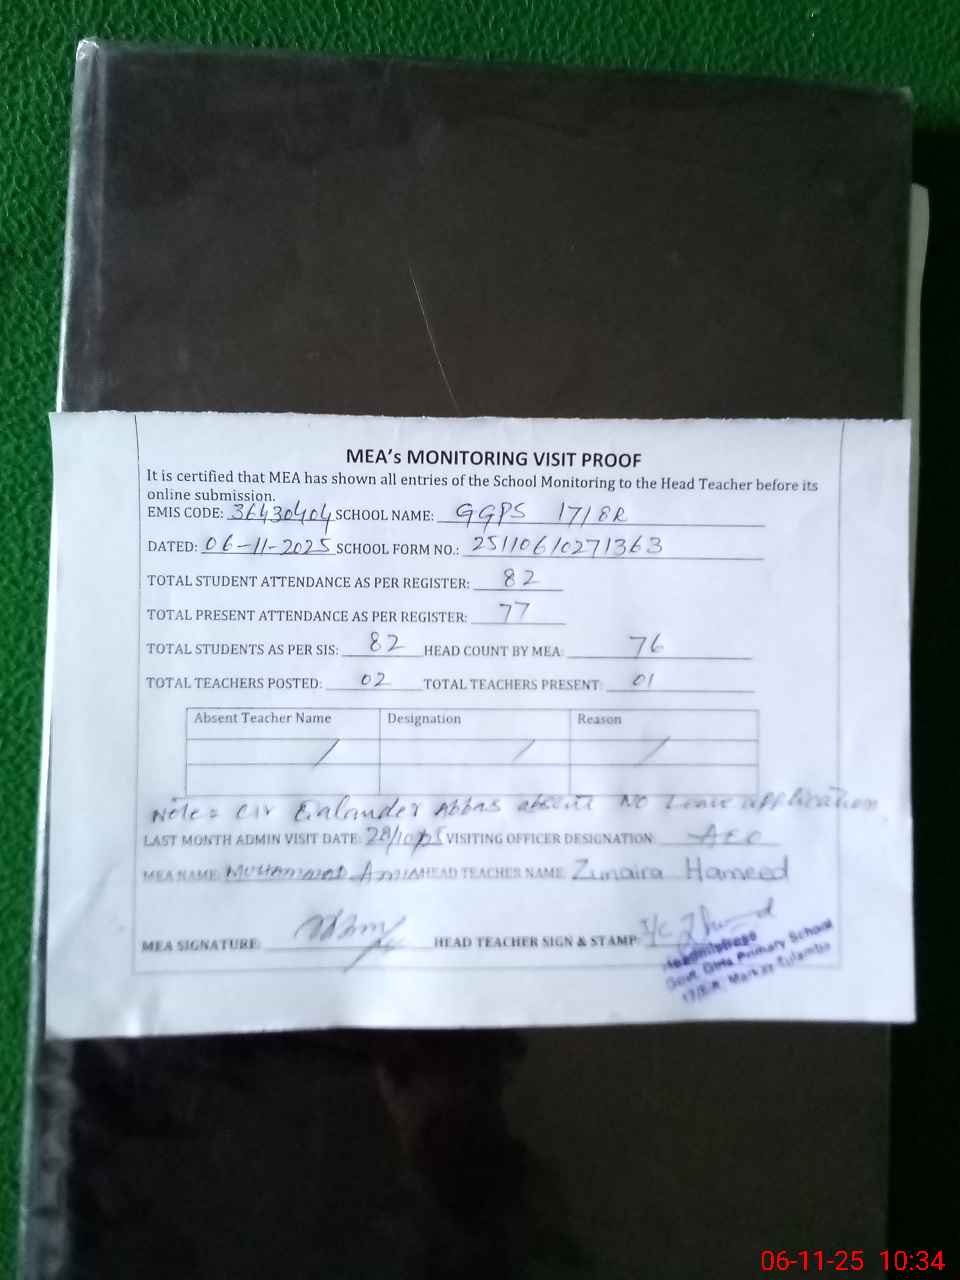 MEA's MONITORING VISIT PROOF
It is certified that MEA has shown all entries of the School Monitoring to the Head Teacher before its
online submission.
EMIS CODE: 36430404 SCHOOL NAME: GGPS 17/8R
DATED: 06-11-2025 SCHOOL FORM NO.: 25110610271363
TOTAL STUDENT ATTENDANCE AS PER REGISTER: 82
TOTAL PRESENT ATTENDANCE AS PER REGISTER: 77
TOTAL STUDENTS AS PER SIS: 82 HEAD COUNT BY MEA: 76
TOTAL TEACHERS POSTED: 02 TOTAL TEACHERS PRESENT: 01
Absent Teacher Name Designation Reason
/ / /
Note = Abbas absent No Leave application
LAST MONTH ADMIN VISIT DATE: 28/10/25 VISITING OFFICER DESIGNATION: AEO
MEA NAME: Muhammad HEAD TEACHER NAME: Zunaira Hameed
MEA SIGNATURE: HEAD TEACHER SIGN & STAMP: I/C
Headmistress
Govt. Girls Primary School
17/8-R, Markaz Tulamba
06-11-25 10:34